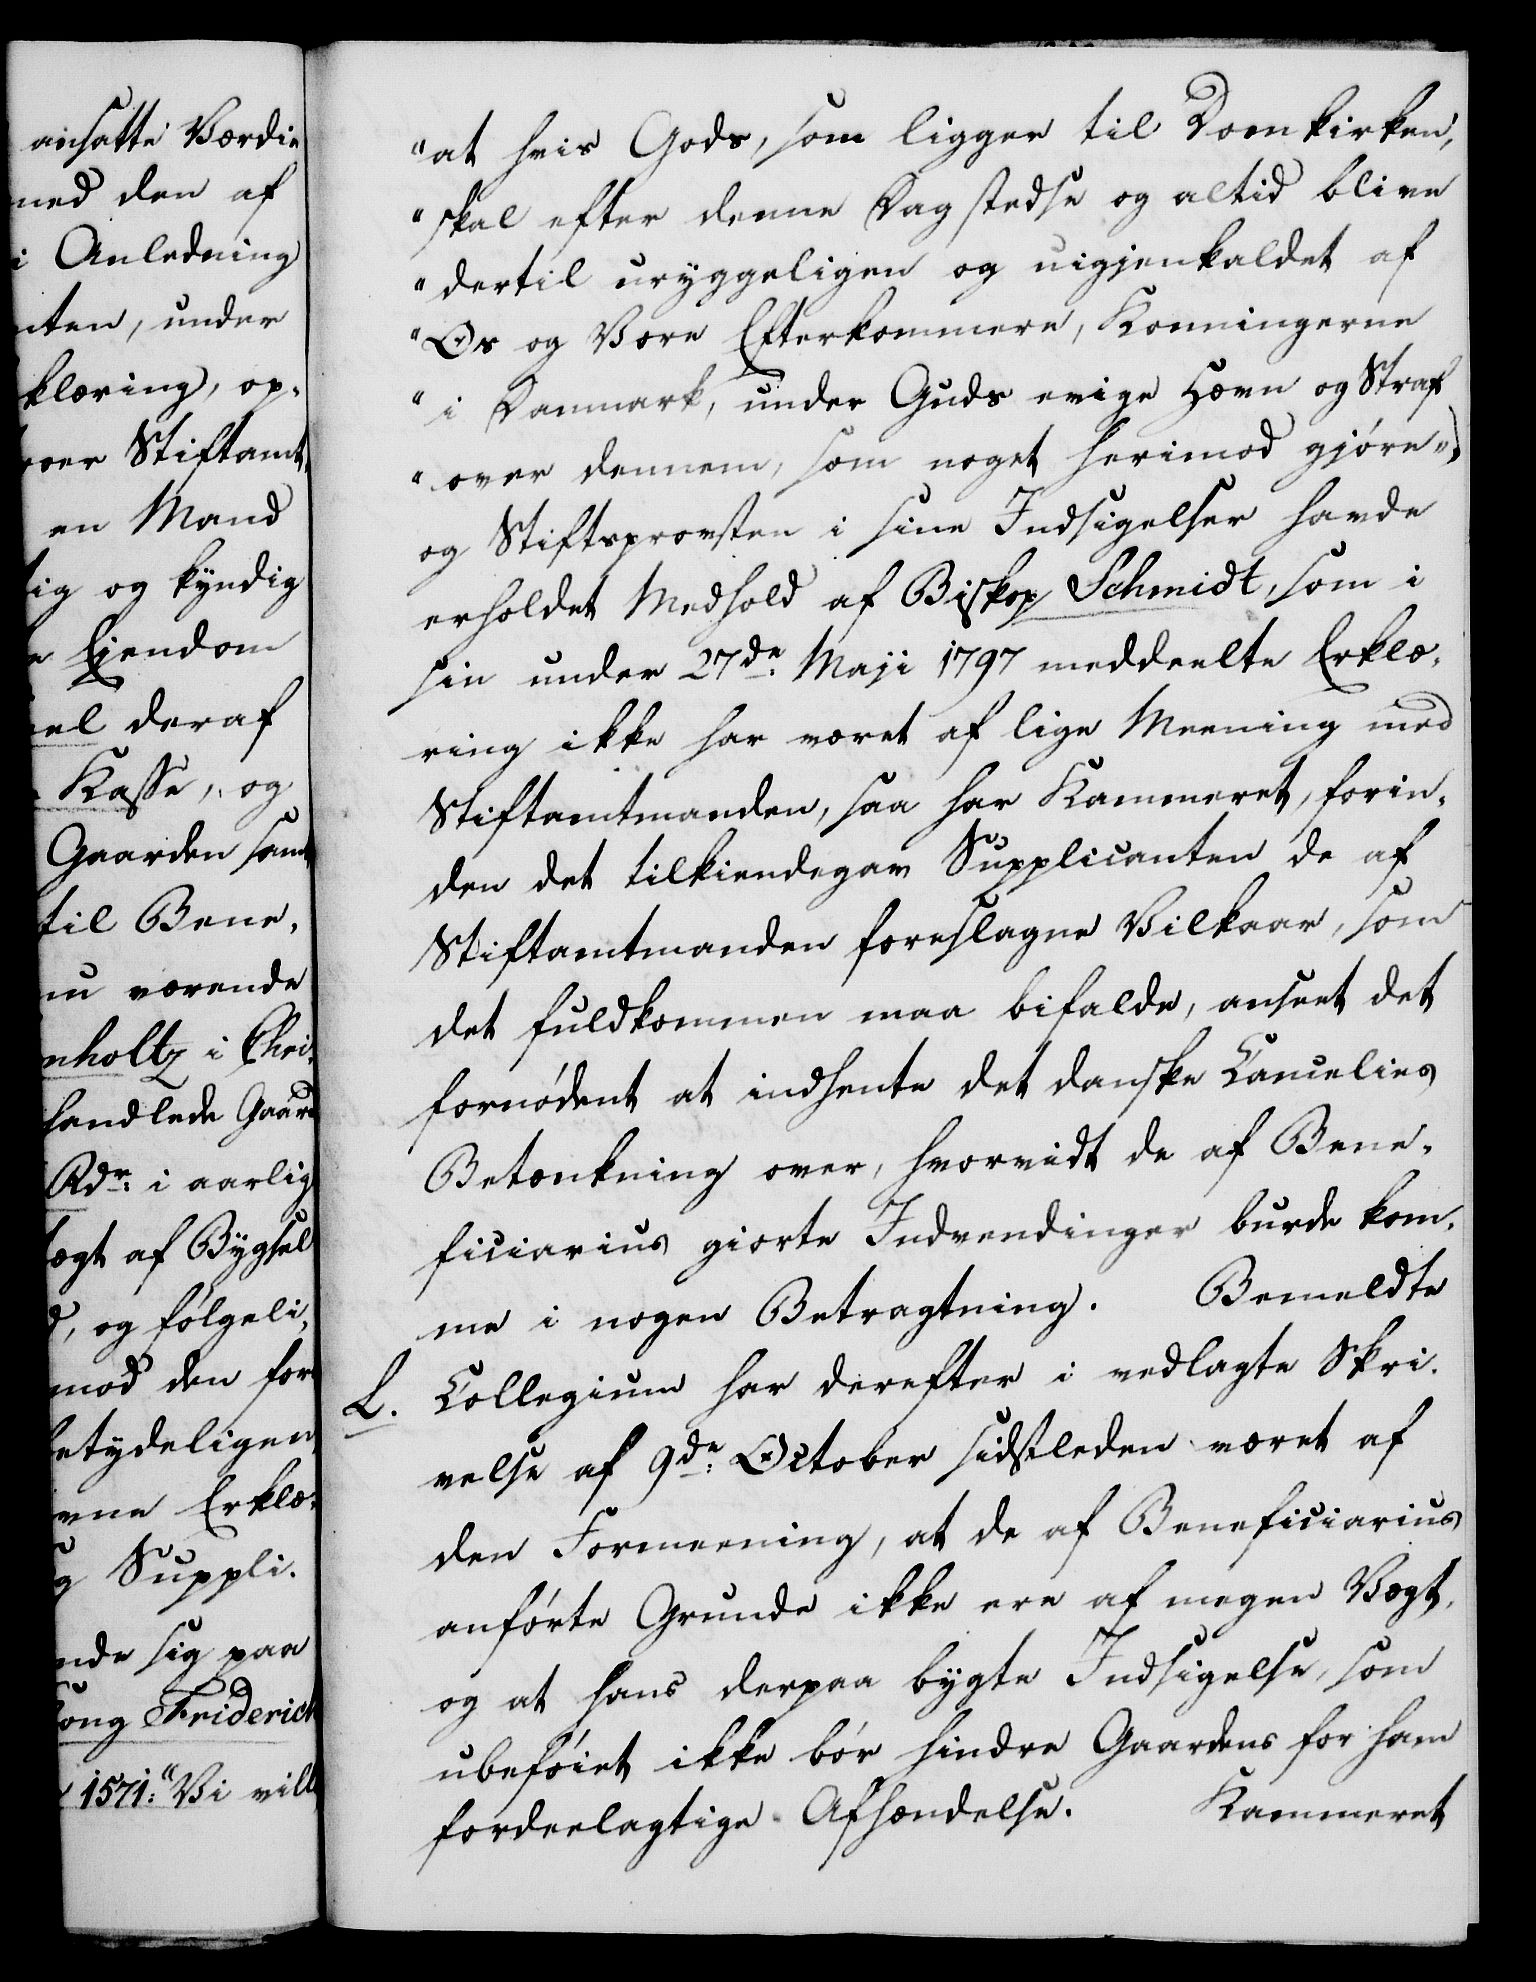 ansatte Værdie
med den af
i Anledning
nten, under
klæring, op-
ver Stiftamt
en Mand
tig og kyndig
e Ejendom
eel deraf
Kasse, og
Gaarden samt
til Bene-
nu værende
nholtz i Chri-
handlede Gaard
Rdr: i aarlig
ægt af Bygsel
d, og følgeli-
mod den for
betydeligen
vne Erklæ-
g Suppli-
nde sig paa
Kong Friderich
1571: "Vi vill
"at hvis Gods, som ligger til Domkirken,
"skal efter denne Dag stedse og altid blive
"dertil uryggeligen og uigjenkaldet af
"Os og Vore Efterkommere, Konningerne
"i Danmark, under Guds evige Hævn og Straf
"over dennem, som noget herimod gjøre")
og Stiftsprovsten i sine Indsigelser havde
erholdet Medhold af Biskop Schmidt, som i
sin under 27de Maji 1797 meddeelte Erklæ-
ring ikke har været af lige Meening med
Stiftamtmanden, saa har Kammeret, forin-
den det tilkiendegav Supplicanten de af
Stiftamtmanden foreslagne Vilkaar, som
det fuldkommen maa bifalde, anseet det
fornødent at indhente det danske Cancelies
Betænkning over, hvorvidt de af Bene-
ficiarius giorte Indvendinger burde kom-
me i nogen Betragtning. Bemeldte
L. Collegium har derefter i vedlagte Skri-
velse af 9de October sidstleden været af
den Formeening, at de af Beneficiarius
anførte Grunde ikke ere af megen Vægt,
og at hans derpaa bygte Indsigelse, som
ubeføiet ikke bør hindre Gaardens for ham
fordeelagtige Afhændelse. Kammeret